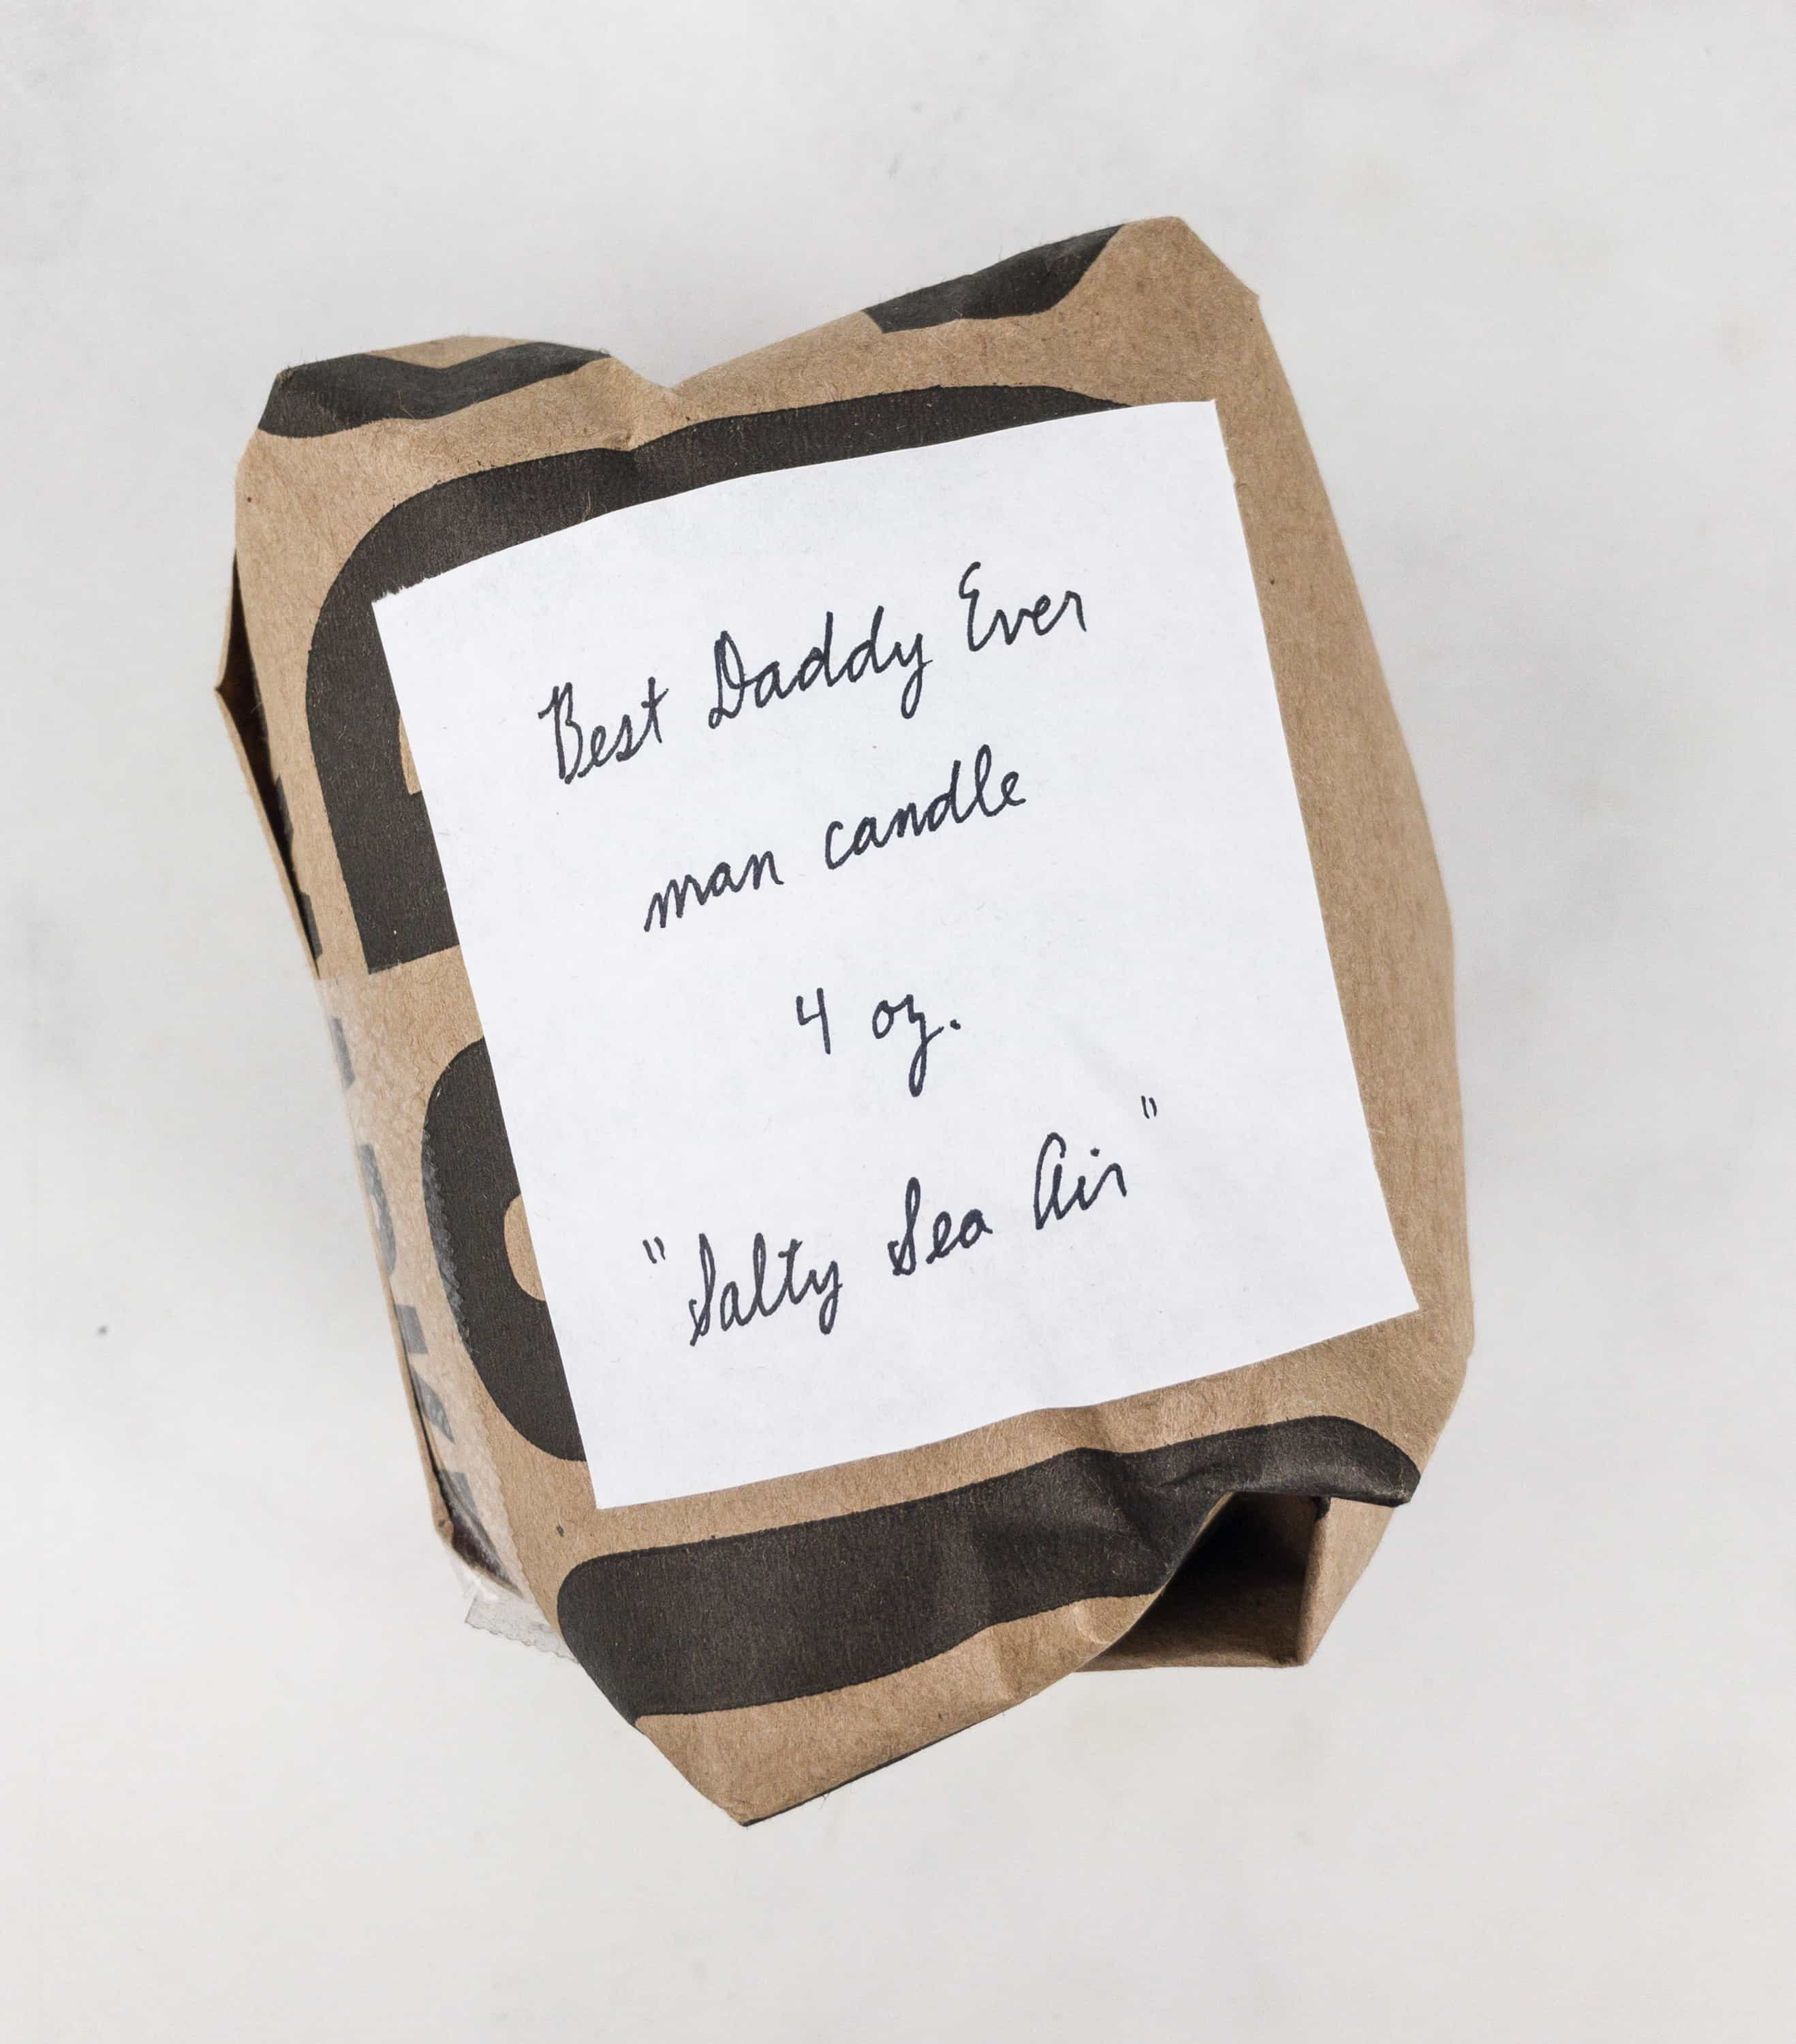 Best Daddy Ever
man candle
4 oz.
"Salty Sea Air"